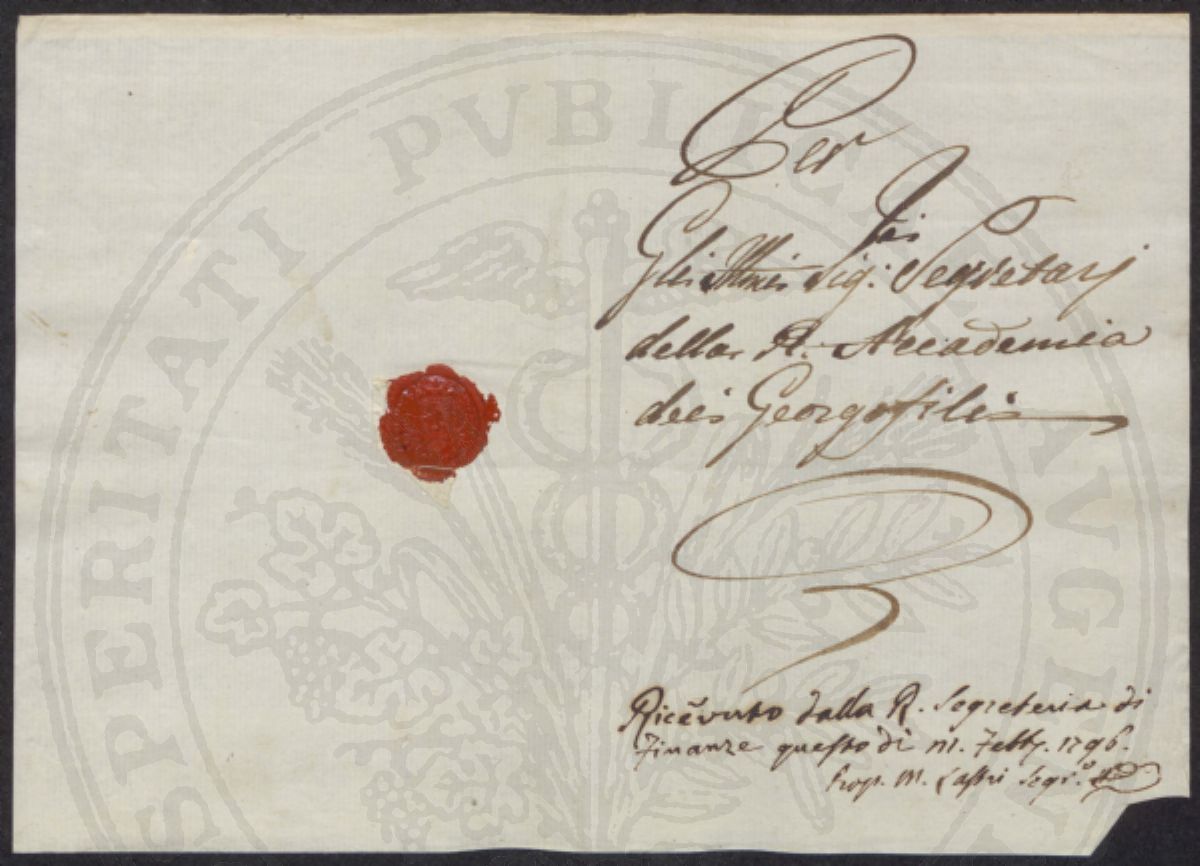 Per
Gli Ill.mi Sig: Segretarj
della R. Accademia
dei Georgofili
Ricevuto dalla R. Segreteria di
Finanze questo dì Febb. 1796.
Prop. M. Lastri Segr.
PROSPERITATI PVBLICAE AVGENDAE